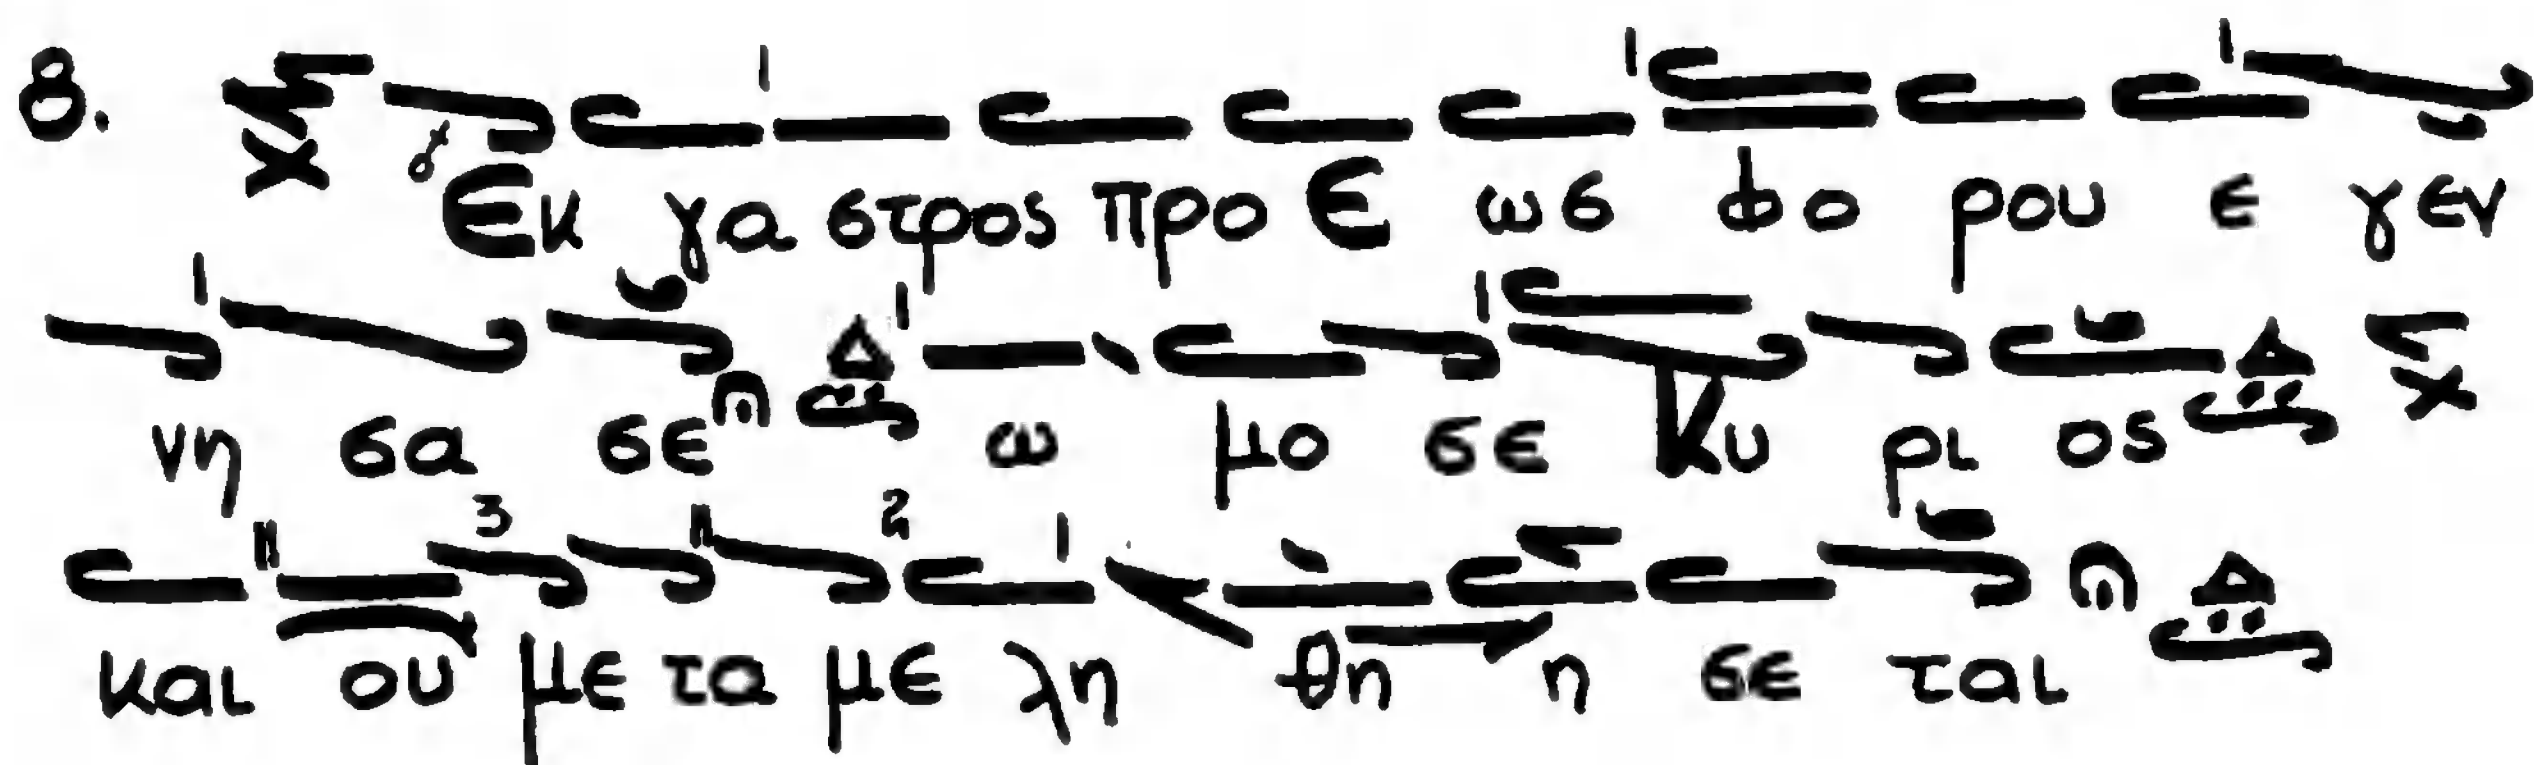 8. Εκ γα στρος προ Ε ως φο ρου ε γεν
νη σα σε ω μο σε Κυ ρι ος
και ου με τα με λη θη η σε ται